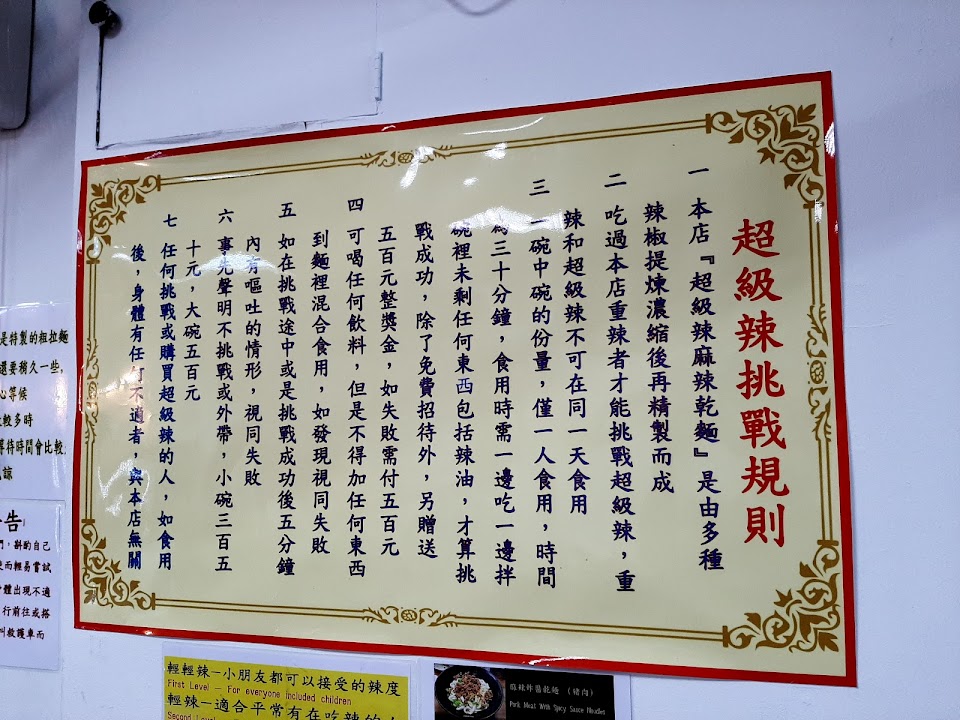 超級辣挑戰規則
一 本店『超級辣麻辣乾麵』是由多種
辣椒提煉濃縮後再精製而成
二 吃過本店重辣者才能挑戰超級辣，重
辣和超級辣不可在同一天食用
三 一碗中碗的份量，僅一人食用，時間
為三十分鐘，食用時需一邊吃一邊拌
碗裡未剩任何東西包括辣油，才算挑
戰成功，除了免費招待外，另贈送
五百元整獎金，如失敗需付五百元
四 可喝任何飲料，但是不得加任何東西
到麵裡混合食用，如發現視同失敗
五 如在挑戰途中或是挑戰成功後五分鐘
內有嘔吐的情形，視同失敗
六 事先聲明不挑戰或外帶，小碗三百五
十元，大碗五百元
七 任何挑戰或購買超級辣的人，如食用
後，身體有任何不適者，與本店無關
是特製的粗拉麵
還要稍久一些，
心等候
較多時
等待時間會比較
諒
告
們，斟酌自己
而輕易嘗試
體出現不適
行前往或搭
叫救護車而
輕輕辣－小朋友都可以接受的辣度
First Level - For everyone included children
輕辣－適合平常有在吃辣的人
Second Level
麻辣炸醬乾麵（豬肉）
Pork Meat With Spicy Sauce Noodles